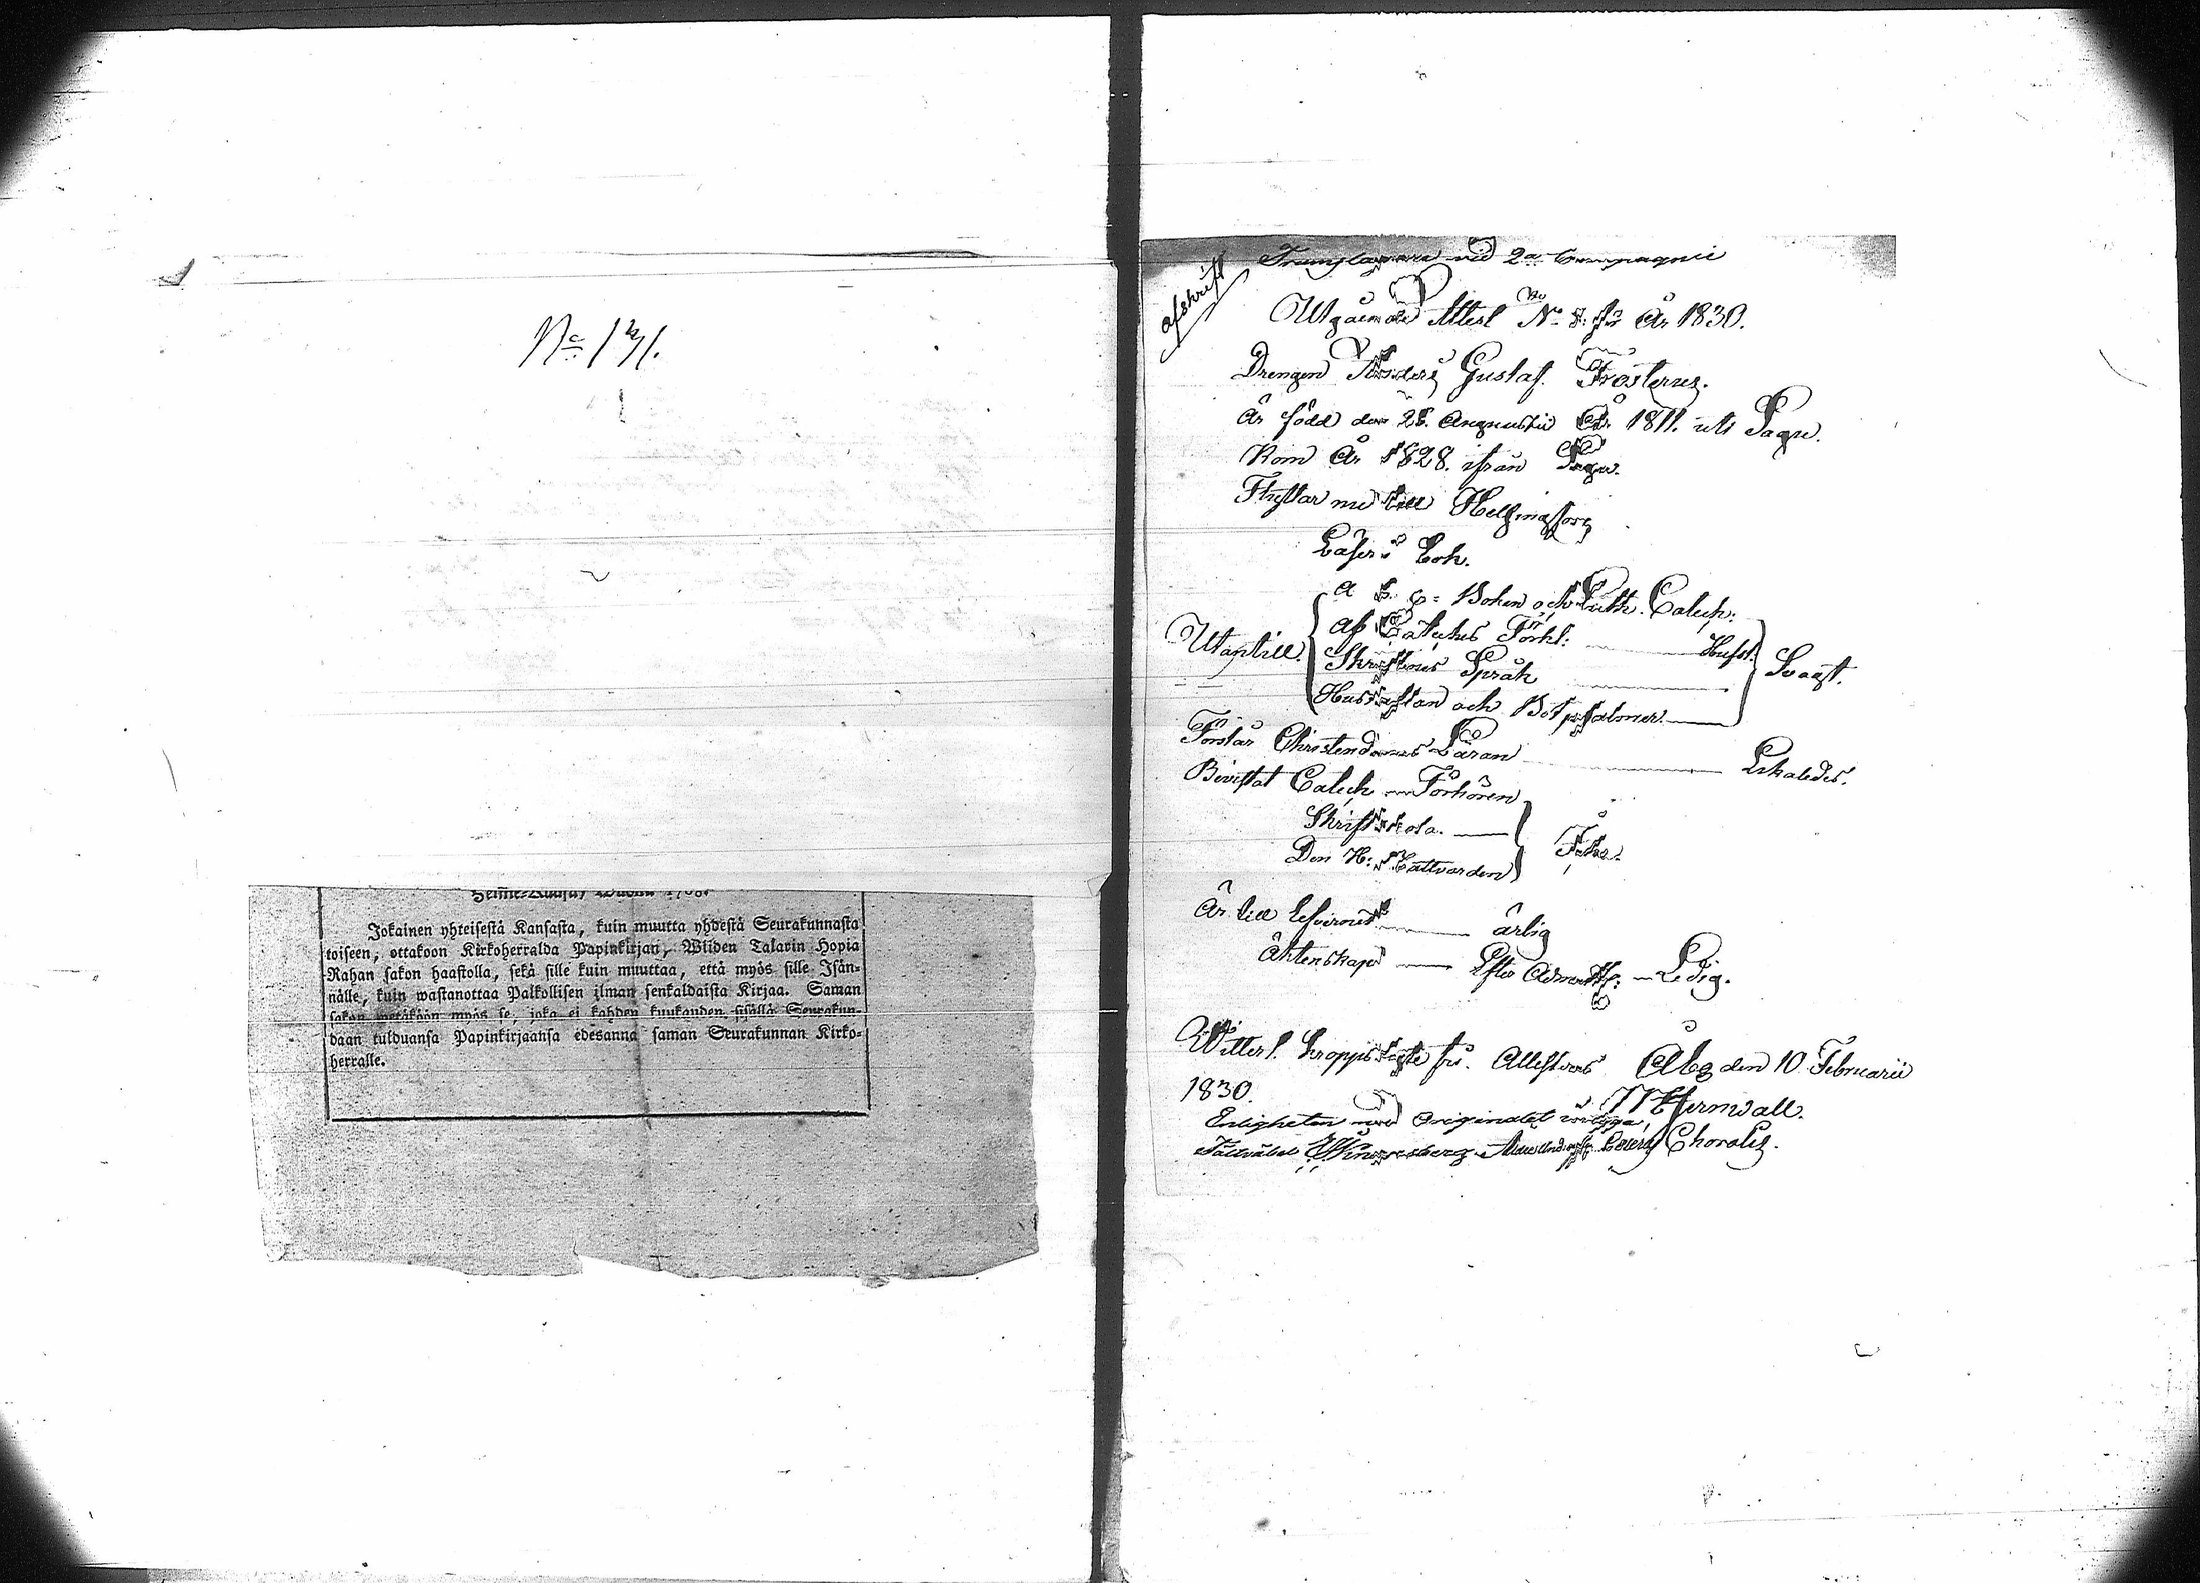 No 171.
Jokainen yhteisestä Kansasta, kuin muutta yhdestä Seurakunnasta
toiseen, ottakoon Kirkoherralda Papinkirjan, Wiiden Talarin Hopia
Rahan sakon haastolla, sekä sille kuin muuttaa, että myös sille Isän-
nälle, kuin wastanottaa Palkollisen ilman senkaldaista Kirjaa. Saman
sakon wetäköön myös se, joka ei kahden kuukauden sisällä Seurakun-
daan tulduansa Papinkirjaansa edesanna saman Seurakunnan Kirko-
herralle.
afskrift
vid 2a Compagnie
Utgående Attest No 8. för År 1830.
Drengen Anders Gustaf Frosterus.
Är född den 28. Augustii År 1811. uti Sagu.
Kom År 1828. ifrån Sagu.
Flyttar nu till Helsingfors
Läser i Bok.
a b. c= Boken och Luth. Catech:
Utantill. af Cateches Förkl: Hufst: Svagt.
Skriftenes Språk
Hustaflan och Botpsalmer.
Förstår Christendoms Läran Enkaledes.
Bevistat Catech Förhören
Skriftskola.
Den H: Nattvarden
Är till lefvernet ärlig
Äktenskap Efter Ledig.
Witterl. kropps lyte fri. Attesteras Åbo den 10 Februarii
1830.
Enligheten med Originalet